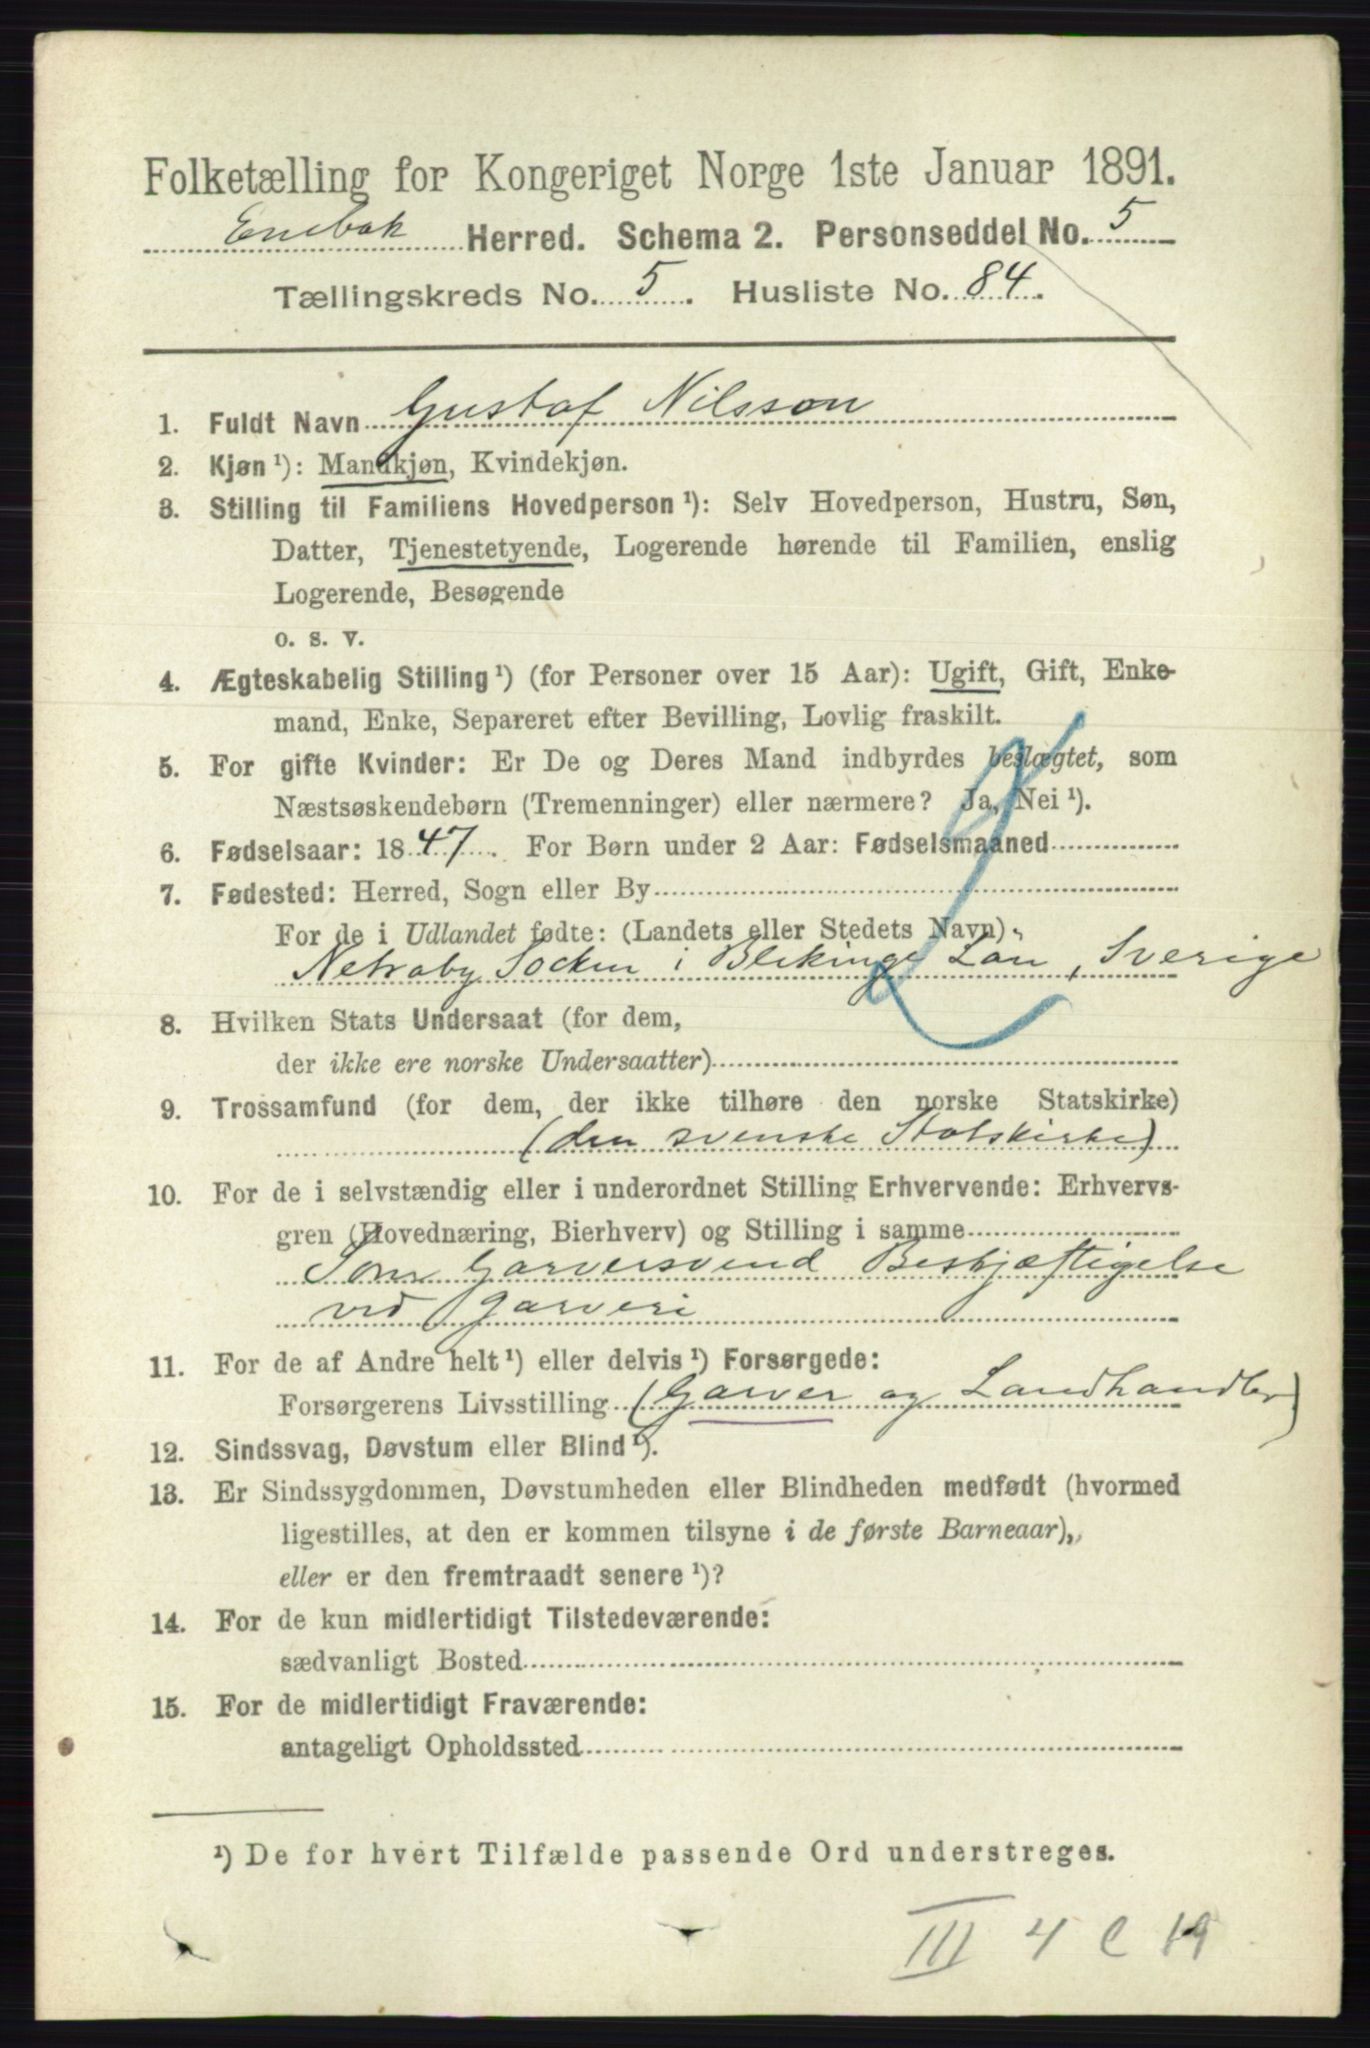 Folketælling for Kongeriget Norge 1ste Januar 1891.
Enebak Herred. Schema 2. Personseddel No. 5
Tællingskreds No. 5. Husliste No. 84.
1. Fuldt Navn Gustaf Nilsson
2. Kjøn ¹): Mandkjøn, Kvindekjøn.
3. Stilling til Familiens Hovedperson ¹): Selv Hovedperson, Hustru, Søn,
Datter, Tjenestetyende, Logerende hørende til Familien, enslig
Logerende, Besøgende
o. s. v.
4. Ægteskabelig Stilling ¹) (for Personer over 15 Aar): Ugift, Gift, Enke-
mand, Enke, Separeret efter Bevilling, Lovlig fraskilt.
5. For gifte Kvinder: Er De og Deres Mand indbyrdes beslægtet, som
Næstsøskendebørn (Tremenninger) eller nærmere? Ja, Nei ¹).
6. Fødselsaar: 1847. For Børn under 2 Aar: Fødselsmaaned
7. Fødested: Herred, Sogn eller By
For de i Udlandet fødte: (Landets eller Stedets Navn)
Netraby Socken i Blekinge Län, Sverige
8. Hvilken Stats Undersaat (for dem,
der ikke ere norske Undersaatter)
9. Trossamfund (for dem, der ikke tilhøre den norske Statskirke)
(den svenske Statskirke)
10. For de i selvstændig eller i underordnet Stilling Erhvervende: Erhvervs-
gren (Hovednæring, Bierhverv) og Stilling i samme
Som Garversvend Beskjæftigelse
ved Garveri
11. For de af Andre helt ¹) eller delvis ¹) Forsørgede:
Forsørgerens Livsstilling (Garver og Landhandler)
12. Sindssvag, Døvstum eller Blind ¹).
13. Er Sindssygdommen, Døvstumheden eller Blindheden medfødt (hvormed
ligestilles, at den er kommen tilsyne i de første Barneaar),
eller er den fremtraadt senere ¹)?
14. For de kun midlertidigt Tilstedeværende:
sædvanligt Bosted
15. For de midlertidigt Fraværende:
antageligt Opholdssted
¹) De for hvert Tilfælde passende Ord understreges.
III 4 c 19